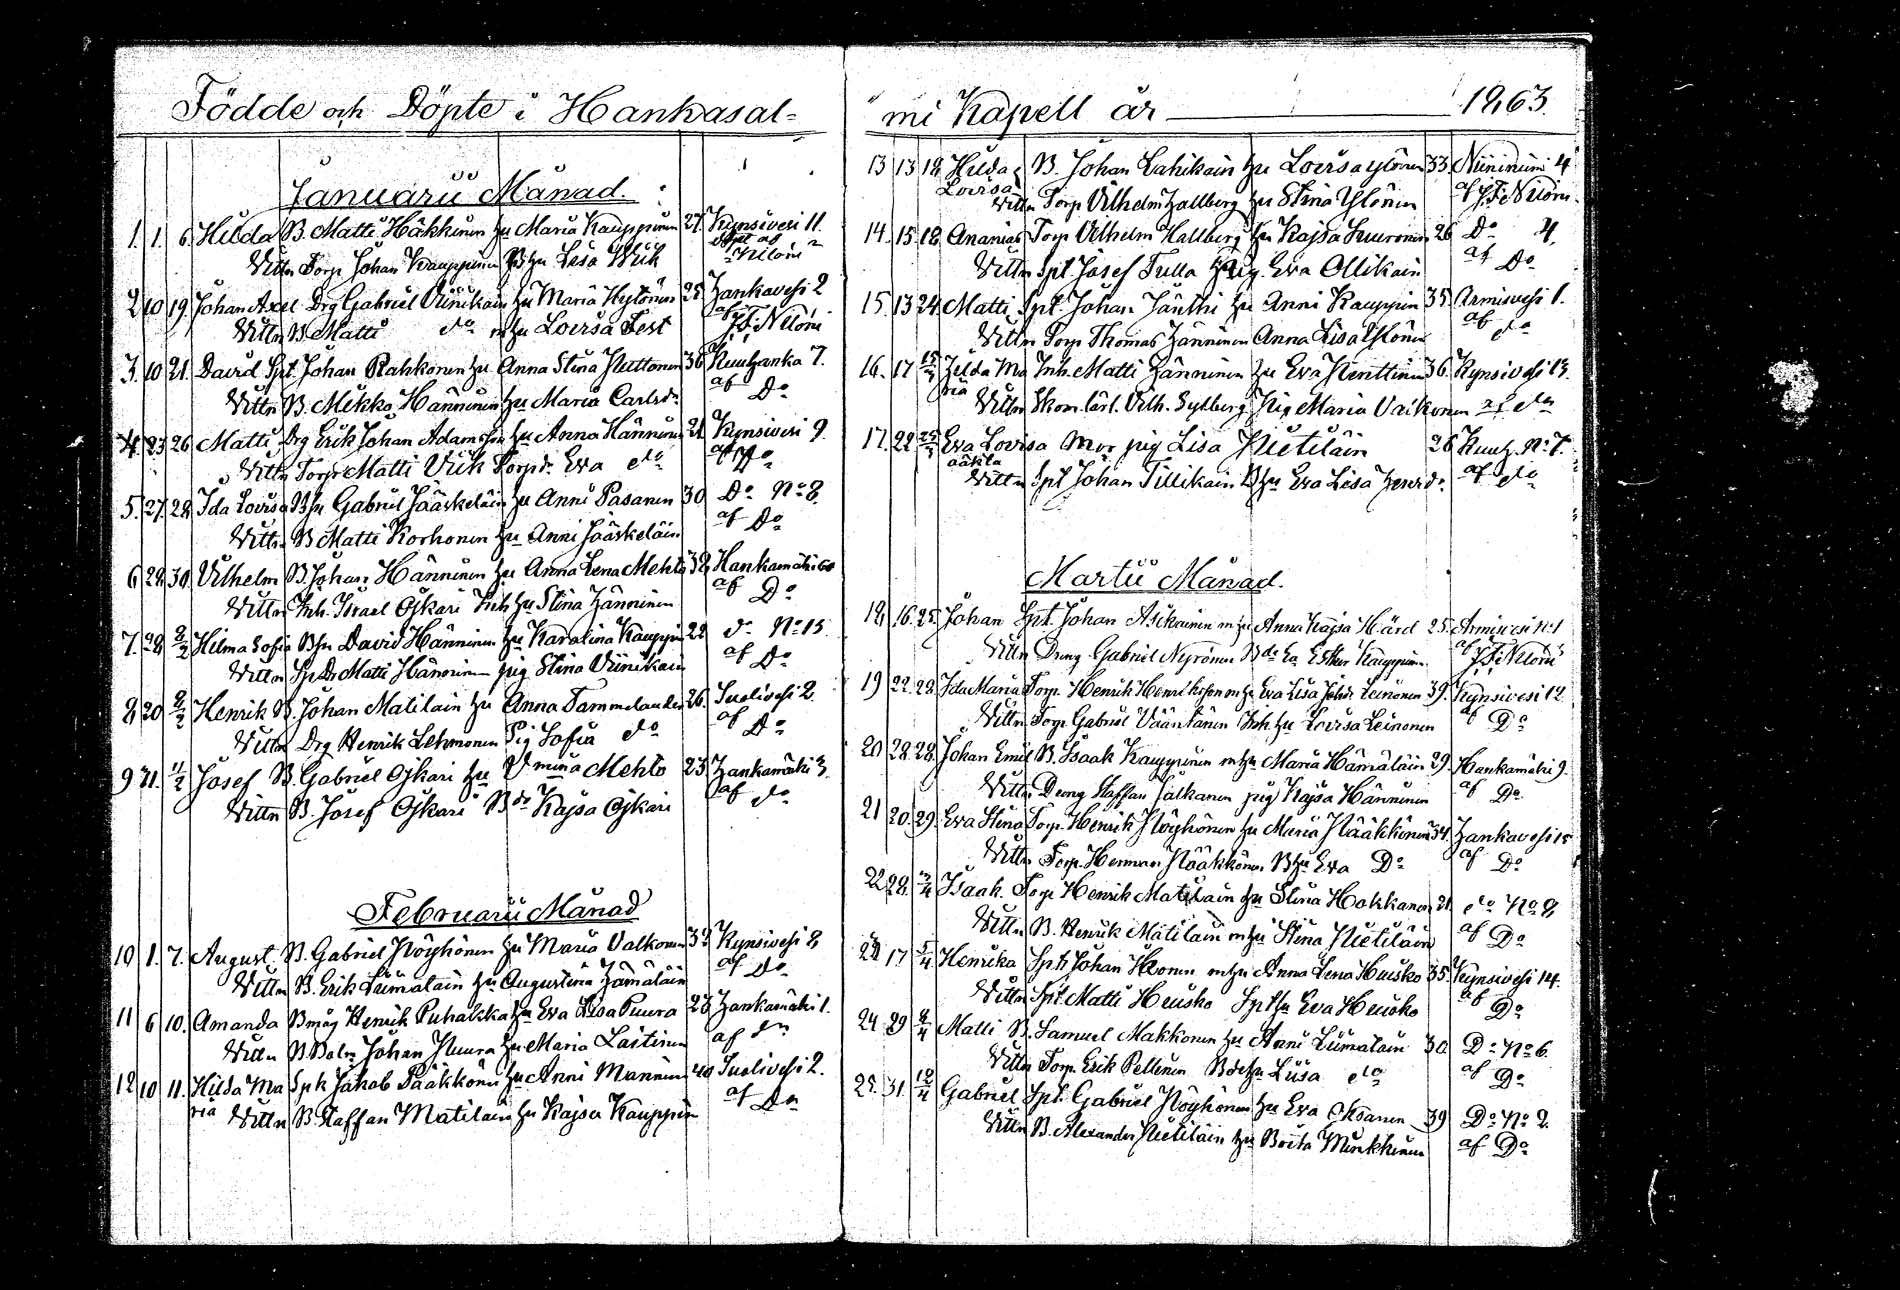 Födde och Döpte i Hankasal-
Januarii Månad.
1. 1. 6. Hilda B. Matti Häkkinen hu Maria Kauppinen 27. Kynsivesi 11.
Vittn Torp. Johan Kauppinen hu Lisa Wiik
2 10 19. Johan Axel Drg Gabriel Viinikain hu Maria Hytönen 25. Hankavesi 2
Vittn B. Matti do hu Lovisa Fest af J. F. Nilóni
3. 10 21. David Spt. Johan Rahkonen hu Anna Stina Puttonen 36 Kuuhanka 7.
Vittn B. Mikko Hänninen hu Maria Carlsdr af Do
4. 23 26 Matti Drg Erik Johan Adamsson hu Anna Hänninen 21 Kynsivesi 9
Vittn Torpr Matti Viik Torpdr Eva do af Do
5. 27. 28. Ida Lovisa Bsn Gabriel Jääskeläin hu Anni Pasanen 30 Do No 8.
Vittn B Matti Korhonen hu Anni Jääskeläin af Do
6 28. 30. Vilhelm B. Johan Hänninen hu Anna Lena Mehto 38 Hankamäki
Vittn Inh. Israel Ojkari Inh hu Stina Hänninen af Do
7. 28. 8/2 Helma Sofia Bsn David Hänninen hu Karolina Kauppin 22 do No 15.
Vittn Matti Hänninen pig Stina Viinikain af Do
8 20 8/2 Henrik B. Johan Matilain hu Anna Tammelander 26. Suolivesi 2.
Vittn Drg Henrik Lehmonen Pig Sofia do af Do
9 31. 11/2 Josef B. Gabriel Ojkari hu Vmina Mehto 23 Hankamäki 3.
Vittn B. Josef Ojkari Bdr Kajsa Ojkari af do
Februarii Månad
10 1. 7. August. B. Gabriel Pöyhönen hu Maria Valkonen 33 Kynsivesi 8
Vittn B. Erik Liimatain hu Augustina Hämäläin af Do
11 6 10. Amanda Bmåg Henrik Puhakka hu Eva Lisa Puura 23 Hankamäki 1.
Vittn B Johan Puura hu Maria Laitinen af do
12 10 11. Hilda Ma Spk Jakob Pääkkönen hu Anni Manninen 40 Suolivesi 2.
ria Vittn B. Staffan Matilain hu Kajsa Kauppin af Do
mi Kapell år 1863.
13 13 18 Hilda B. Johan Lahikain hu Lovisa Ylönen 33. Niinimäki 4
Lovisa Vittn Torp. Vilhelm Hallberg hu Stina Ylönen af J. F. Nilóni.
14. 15 18. Ananias Torp. Vilhelm Hallberg hu Kajsa Suuronen 26 Do 4.
Vittn Spt. Josef Tulla Pig. Eva Ollikain af Do
15. 13 24. Matti Spt. Johan Jäntti hu Anni Kauppin 35. Armisvesi 1.
Vittn Torp Thomas Hänninen Anna Lisa Ylönen af do
16. 17 15/3 Hilda Ma Inh. Matti Hänninen hu Eva Penttinen 36. Kynsivesi 13.
ria Vittn Skom. lärl. Vilh. Sylberg Pig Maria Vaikonen af do
17. 22 25/3 Eva Lovisa Mor pig Lisa Pietiläin 26 Kuuh. No 7.
oäkta Vittn Spt Johan Tillikain hu Eva Lisa Henrdr. af do
Martii Månad.
18 16. 25. Johan Spt. Johan Asikainen m hu Anna Kajsa Hård 25. Armivesi No 1
Vittn Dreng Gabriel Nyrönen Bdr Ester Kauppinen af J. F. Nilóni
19 22. 28. Ida Maria Torp. Henrik Henriksson m hu Eva Lisa Leinonen 39. Kynsivesi 12.
Vittn Torp Gabriel Väänänen Inh. hu Lovisa Leinonen af Do
20 28. 28. Johan Emil B. Isaak Kauppinen m hu Maria Hämäläin 29. Hankamäki 9.
Vittn Dreng Staffan Jalkanen pig Kajsa Hänninen af Do
21 20. 29. Eva Stina Torp. Henrik Pöyhönen hu Maria Pääkkönen 34. Hankavesi 15
Vittn Torp. Herman Pääkkönen B hu Eva Do af Do
22 28. 3/4 Isaak. Torp Henrik Matilain hu Stina Hokkanen 21. do No 8
Vittn B. Henrik Matilain m hu Stina Pietiläin af Do
23 17 5/4 Henrika Spt Johan m hu Anna Lena Huisko 35. Kynsivesi 14.
Vittn Spt. Matti Huisko Spt hu Eva Huisko af Do
24 29 8/4 Matti B. Samuel Makkonen hu Anni Liimatain 30 Do No 6.
Vittn Torp. Erik Pellinen hu Liisa do af Do
25. 31. 12/4 Gabriel Spt. Gabriel Pöyhönen hu Eva Oksanen 39 Do No 2.
Vittn B. Alexander Pietiläin hu Brita Minkkinen af Do